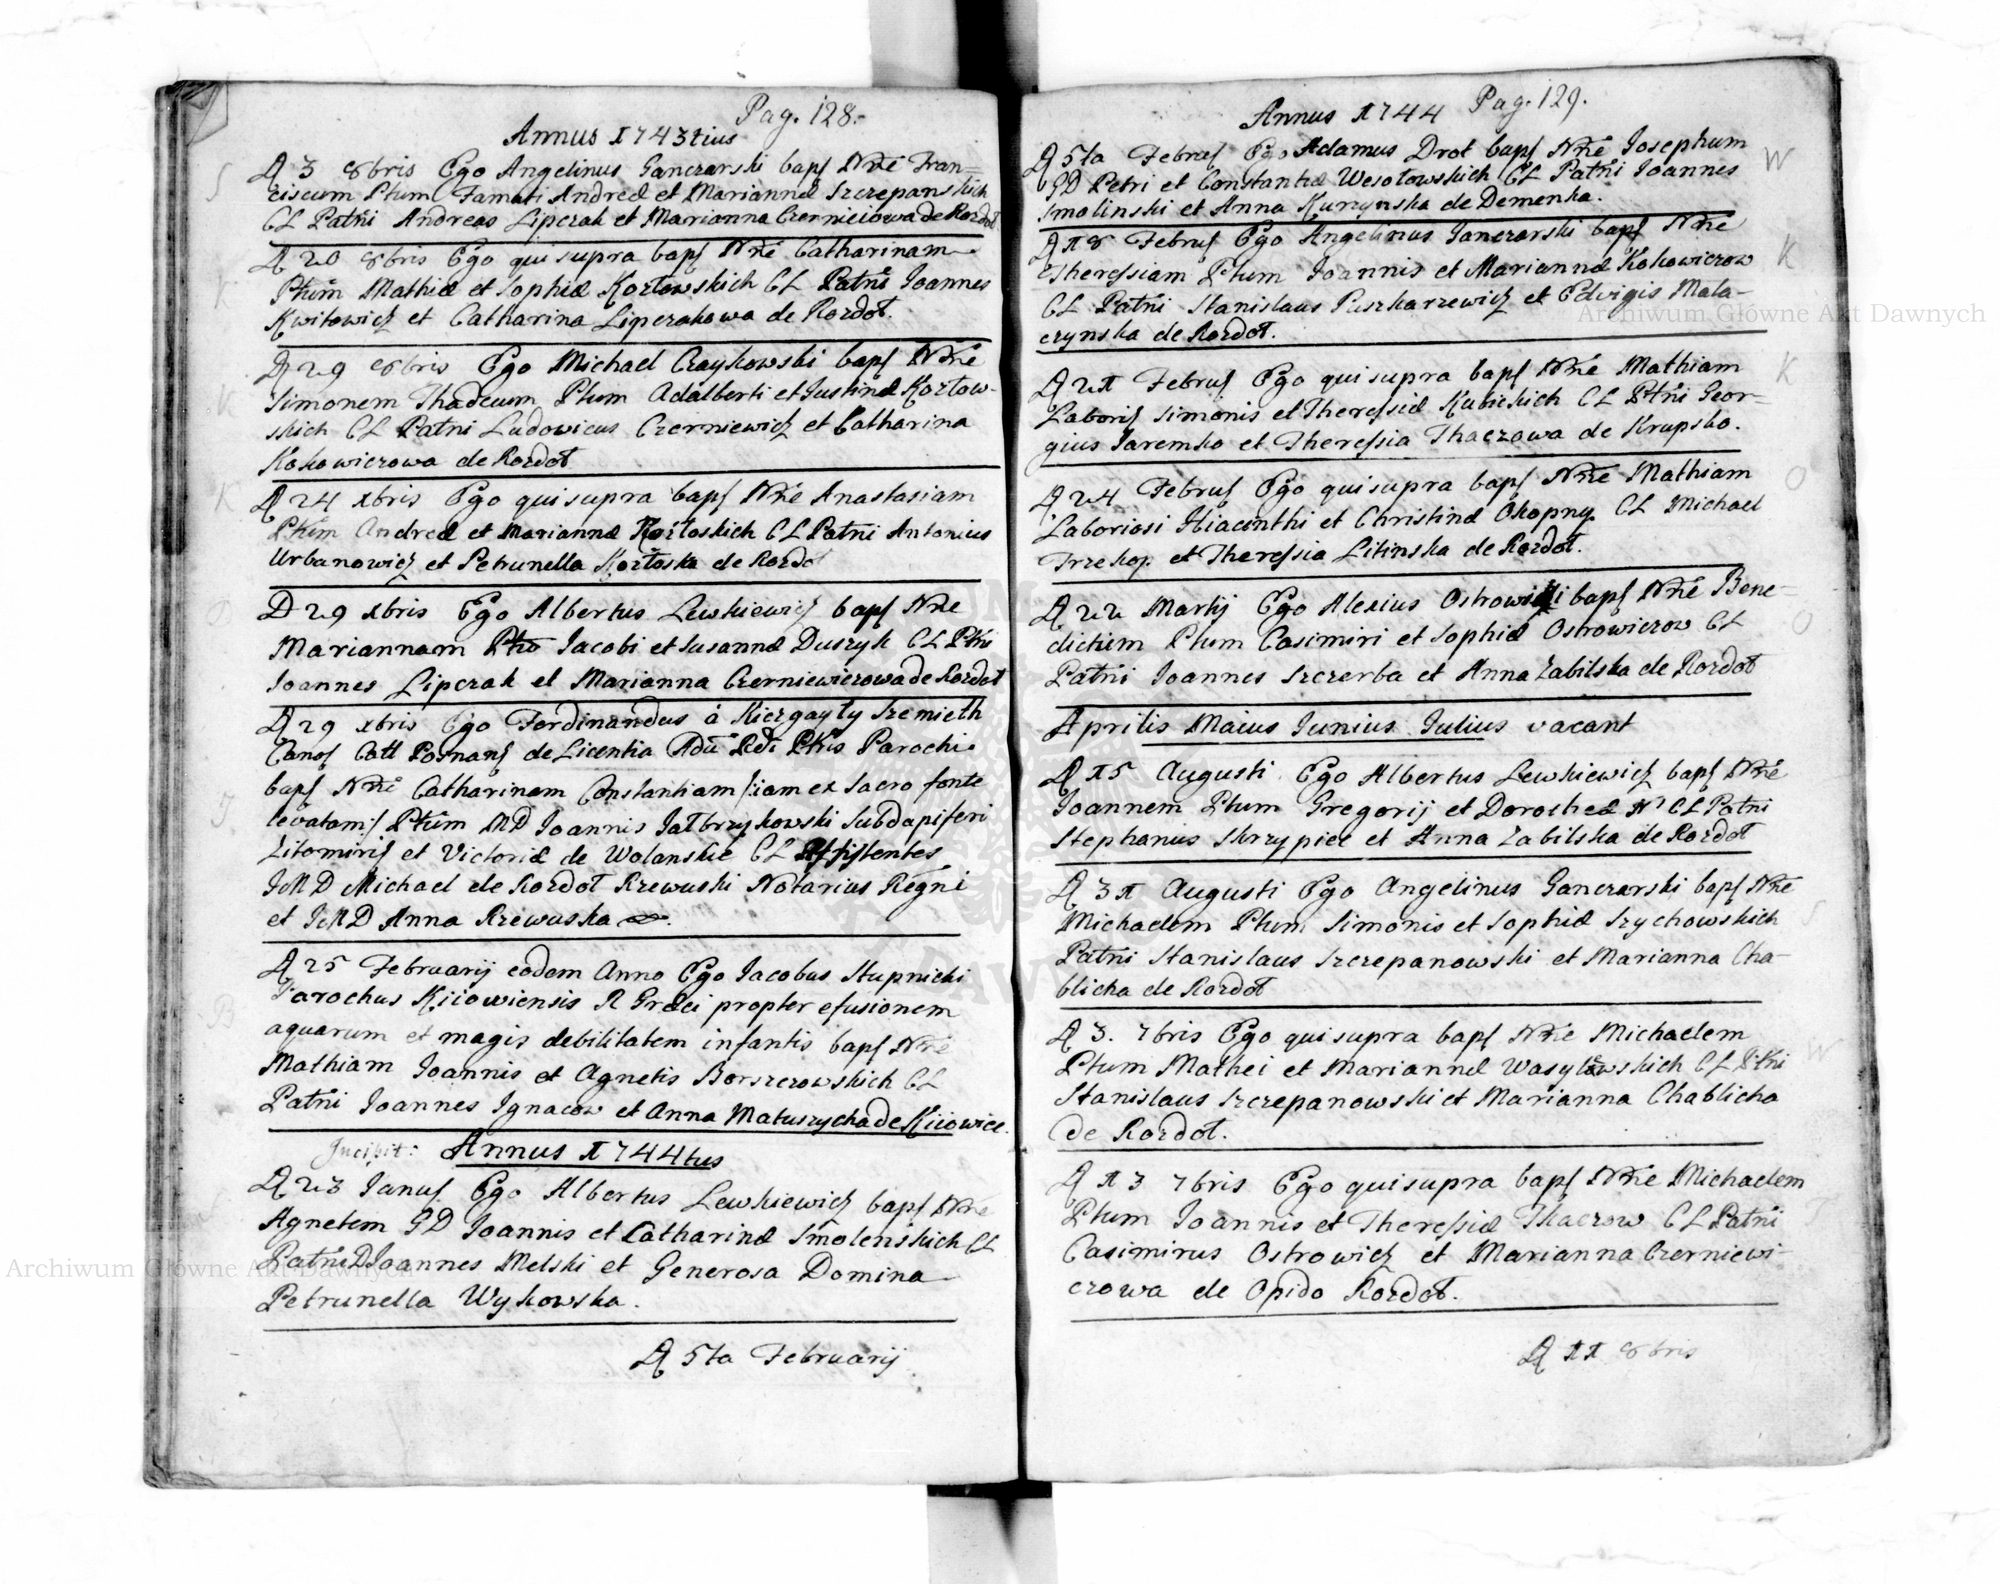 Pag. 128.
Annus 1743tius
D 3 8bris Ego Angelinus Ganczarski bapſ Nrie Fran-
ciscum Ptum Famati Andreæ et Mariannæ Szczepanskich
CL Patñi Andreas Lipczak et Marianna Czernieiowa de Rozdoł
D 20 8bris Ego qui supra bapſ Nrie Catharinam
Ptum Mathiæ et Sophiæ Kozłowskich CL Patñi Joannes
Kwitowicz et Catharina Lipczakowa de Rozdoł.
D 29 8bris Ego Michael Czaykowski bapſ Nrie
Simonem Thadeum Ptum Adalberti et Justinæ Kozłow-
skich CL Patñi Ludovicus Czerniewicz et Catharina
Kokowiczowa de Rozdoł
D 24 xbris Ego qui supra bapſ Nrie Anastasiam
Ptum Andreæ et Mariannæ Kozłoskich CL Patñi Antonius
Urbanowicz et Petrunella Kozłoska de Rozdo
D 29 xbris Ego Albertus Lewkiewicz bapſ Nrie
Mariannam Jacobi et Susannæ Duszyk CL Ptñi
Joannes Lipczak et Marianna Czerniewiczowa de Rozdoł
D 29 xbris Ego Ferdinandus á Kiezgayły Szemieth
Canoſ Catt Posnanſ de Licentia Adū Rdi Ptris Parochi
bapſ Nrie Catharinam Constantiam jam ex Sacro fonte
levatam Ptum MD Joannis Jałbrzykowski Subdapiferi
Zitomiriſ et Victoriæ de Wolanskie CL Assistentes
JMD Michael de Rozdoł Rzewuski Notarius Regni
et JMD Anna Rzewuska
D 25 Februarij eodem Anno Ego Jacobus Stupnicki
Parochus Kiiowiensis R Græci propter efusionem
aquarum et magis debilitatem infantis bapſ Nrie
Mathiam Joannis et Agnetis Borszczowskich CL
Patñi Joannes Ignacow et Anna Matuszycha de Kiiowice.
Incipit: Annus 1744tus
D 23 Januſ Ego Albertus Lewkiewicz bapſ Nrie
Agnetem GD Joannis et Catharinæ Smolenskich CL
Patñi D Joannes Melski et Generosa Domina
Petrunella Wykowska.
D 5ta Februarij
Annus 1744 Pag. 129.
D 5ta Februſ Ego Adamus Drot bapſ Nrie Josephum
GD Petri et Constantiæ Wesołowskich CL Patñi Joannes
Smolinski et Anna Kurzynska de Demenka.
D 18 Februſ Ego Angelinus Ganczarski bapſ Nrie
Theressiam Ptum Joannis et Mariannæ Kokowiczow
CL Patñi Stanislaus Puszkarzewicz et Edvigis Mala-
czynska de Rozdoł.
D 21 Februſ Ego qui supra bapſ Nrie Mathiam
Laboriſ Simonis et Theressiæ Kubickich CL Ptñi Geor-
gius Jaremko et Theressia Tkaczowa de Krupsko.
D 24 Februſ Ego qui supra bapſ Nrie Mathiam
Laboriosi Hiacinthi et Christinæ Okopny CL Michael
Przekop et Theressia Litinska de Rozdoł.
D 22 Martij Ego Alexius Ostrowi bapſ Nrie Bene-
dictum Ptum Casimiri et Sophiæ Ostrowiczow CL
Patñi Joannes Szczerba et Anna Zabilska de Rozdoł
Aprilis Maius Junius Julius vacant
D 15 Augusti Ego Albertus Lewkiewicz bapſ Nrie
Joannem Ptum Gregorij et Dorotheæ N CL Patñi
Stephanus Skrzypiec et Anna Zabilska de Rozdoł
D 31 Augusti Ego Angelinus Ganczarski bapſ Nrie
Michaelem Ptum Simonis et Sophiæ Szychowskich
Patñi Stanislaus Szczepanowski et Marianna Cha-
blicka de Rozdoł
D 3. 7bris Ego qui supra bapſ Nrie Michaelem
Ptum Mathei et Mariannæ Wasylowskich CL Ptñi
Stanislaus Szczepanowski et Marianna Chablicka
de Rozdoł.
D 13 7bris Ego qui supra bapſ Nrie Michaelem
Ptum Joannis et Theressiæ Tkaczow CL Patñi
Casimirus Ostrowicz et Marianna Czerniewi-
czowa de Opido Rozdoł.
D 11 8bris
S
K
K
K
D
J
B
S
W
K
K
O
O
S
W
T
Archiwum Główne Akt Dawnych
Archiwum Główne Akt Dawnych